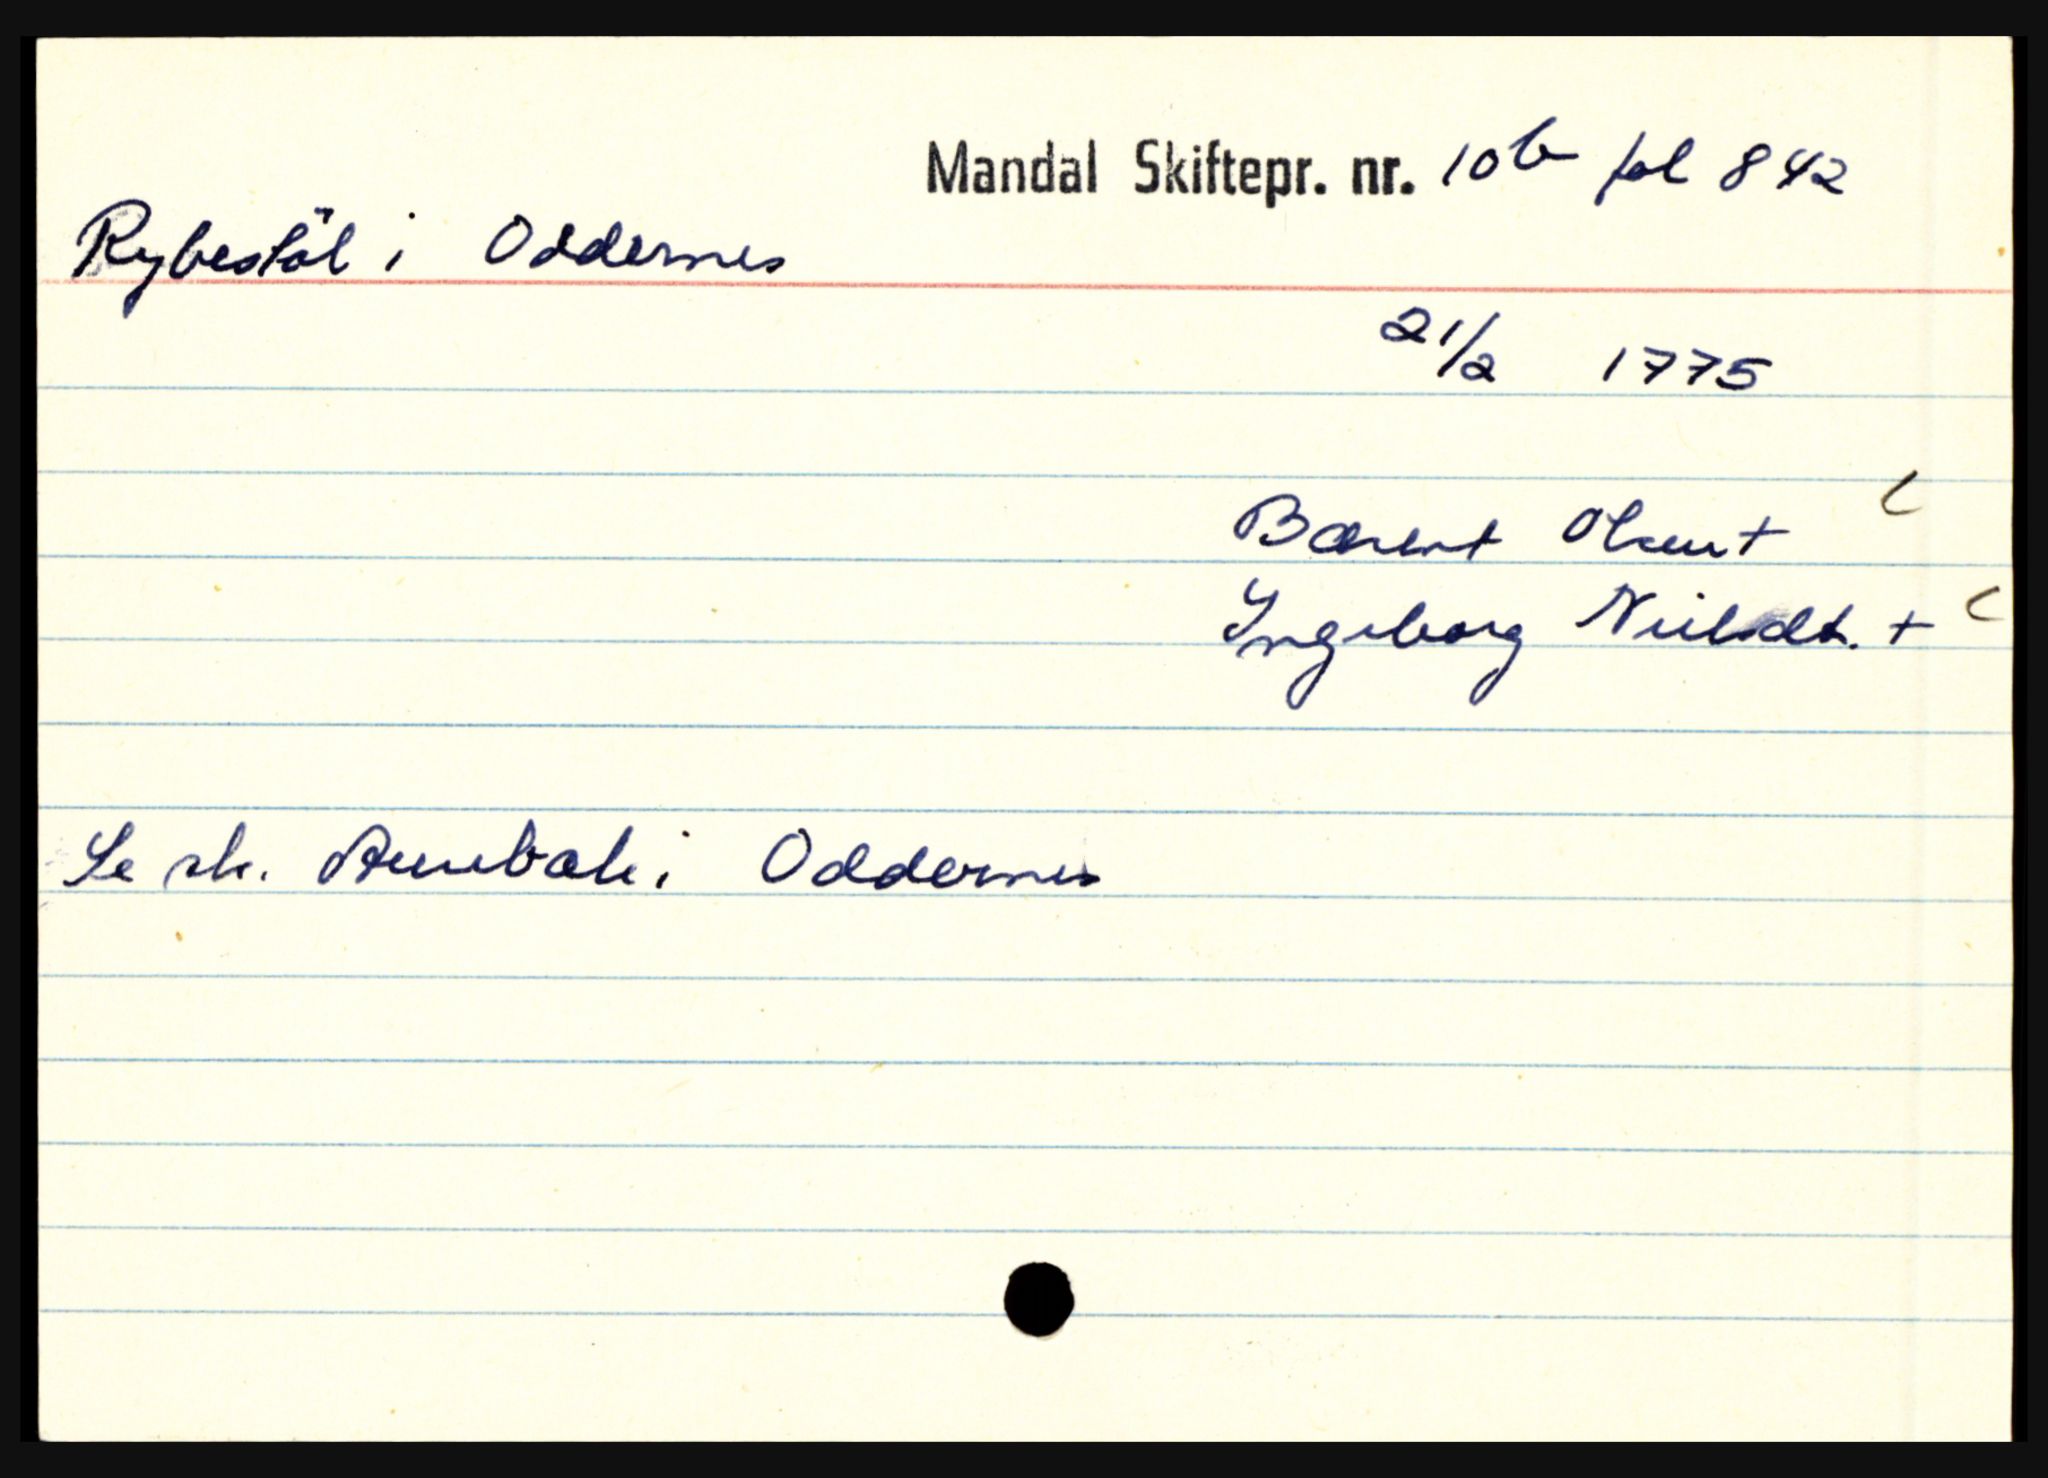 Mandal Skiftepr. nr. 10b fol 842
Rybestöl i Oddernes
21/2 1775
Bærent Olsen +
Ingeborg Neilsdt. +
Se sk. i Oddernes